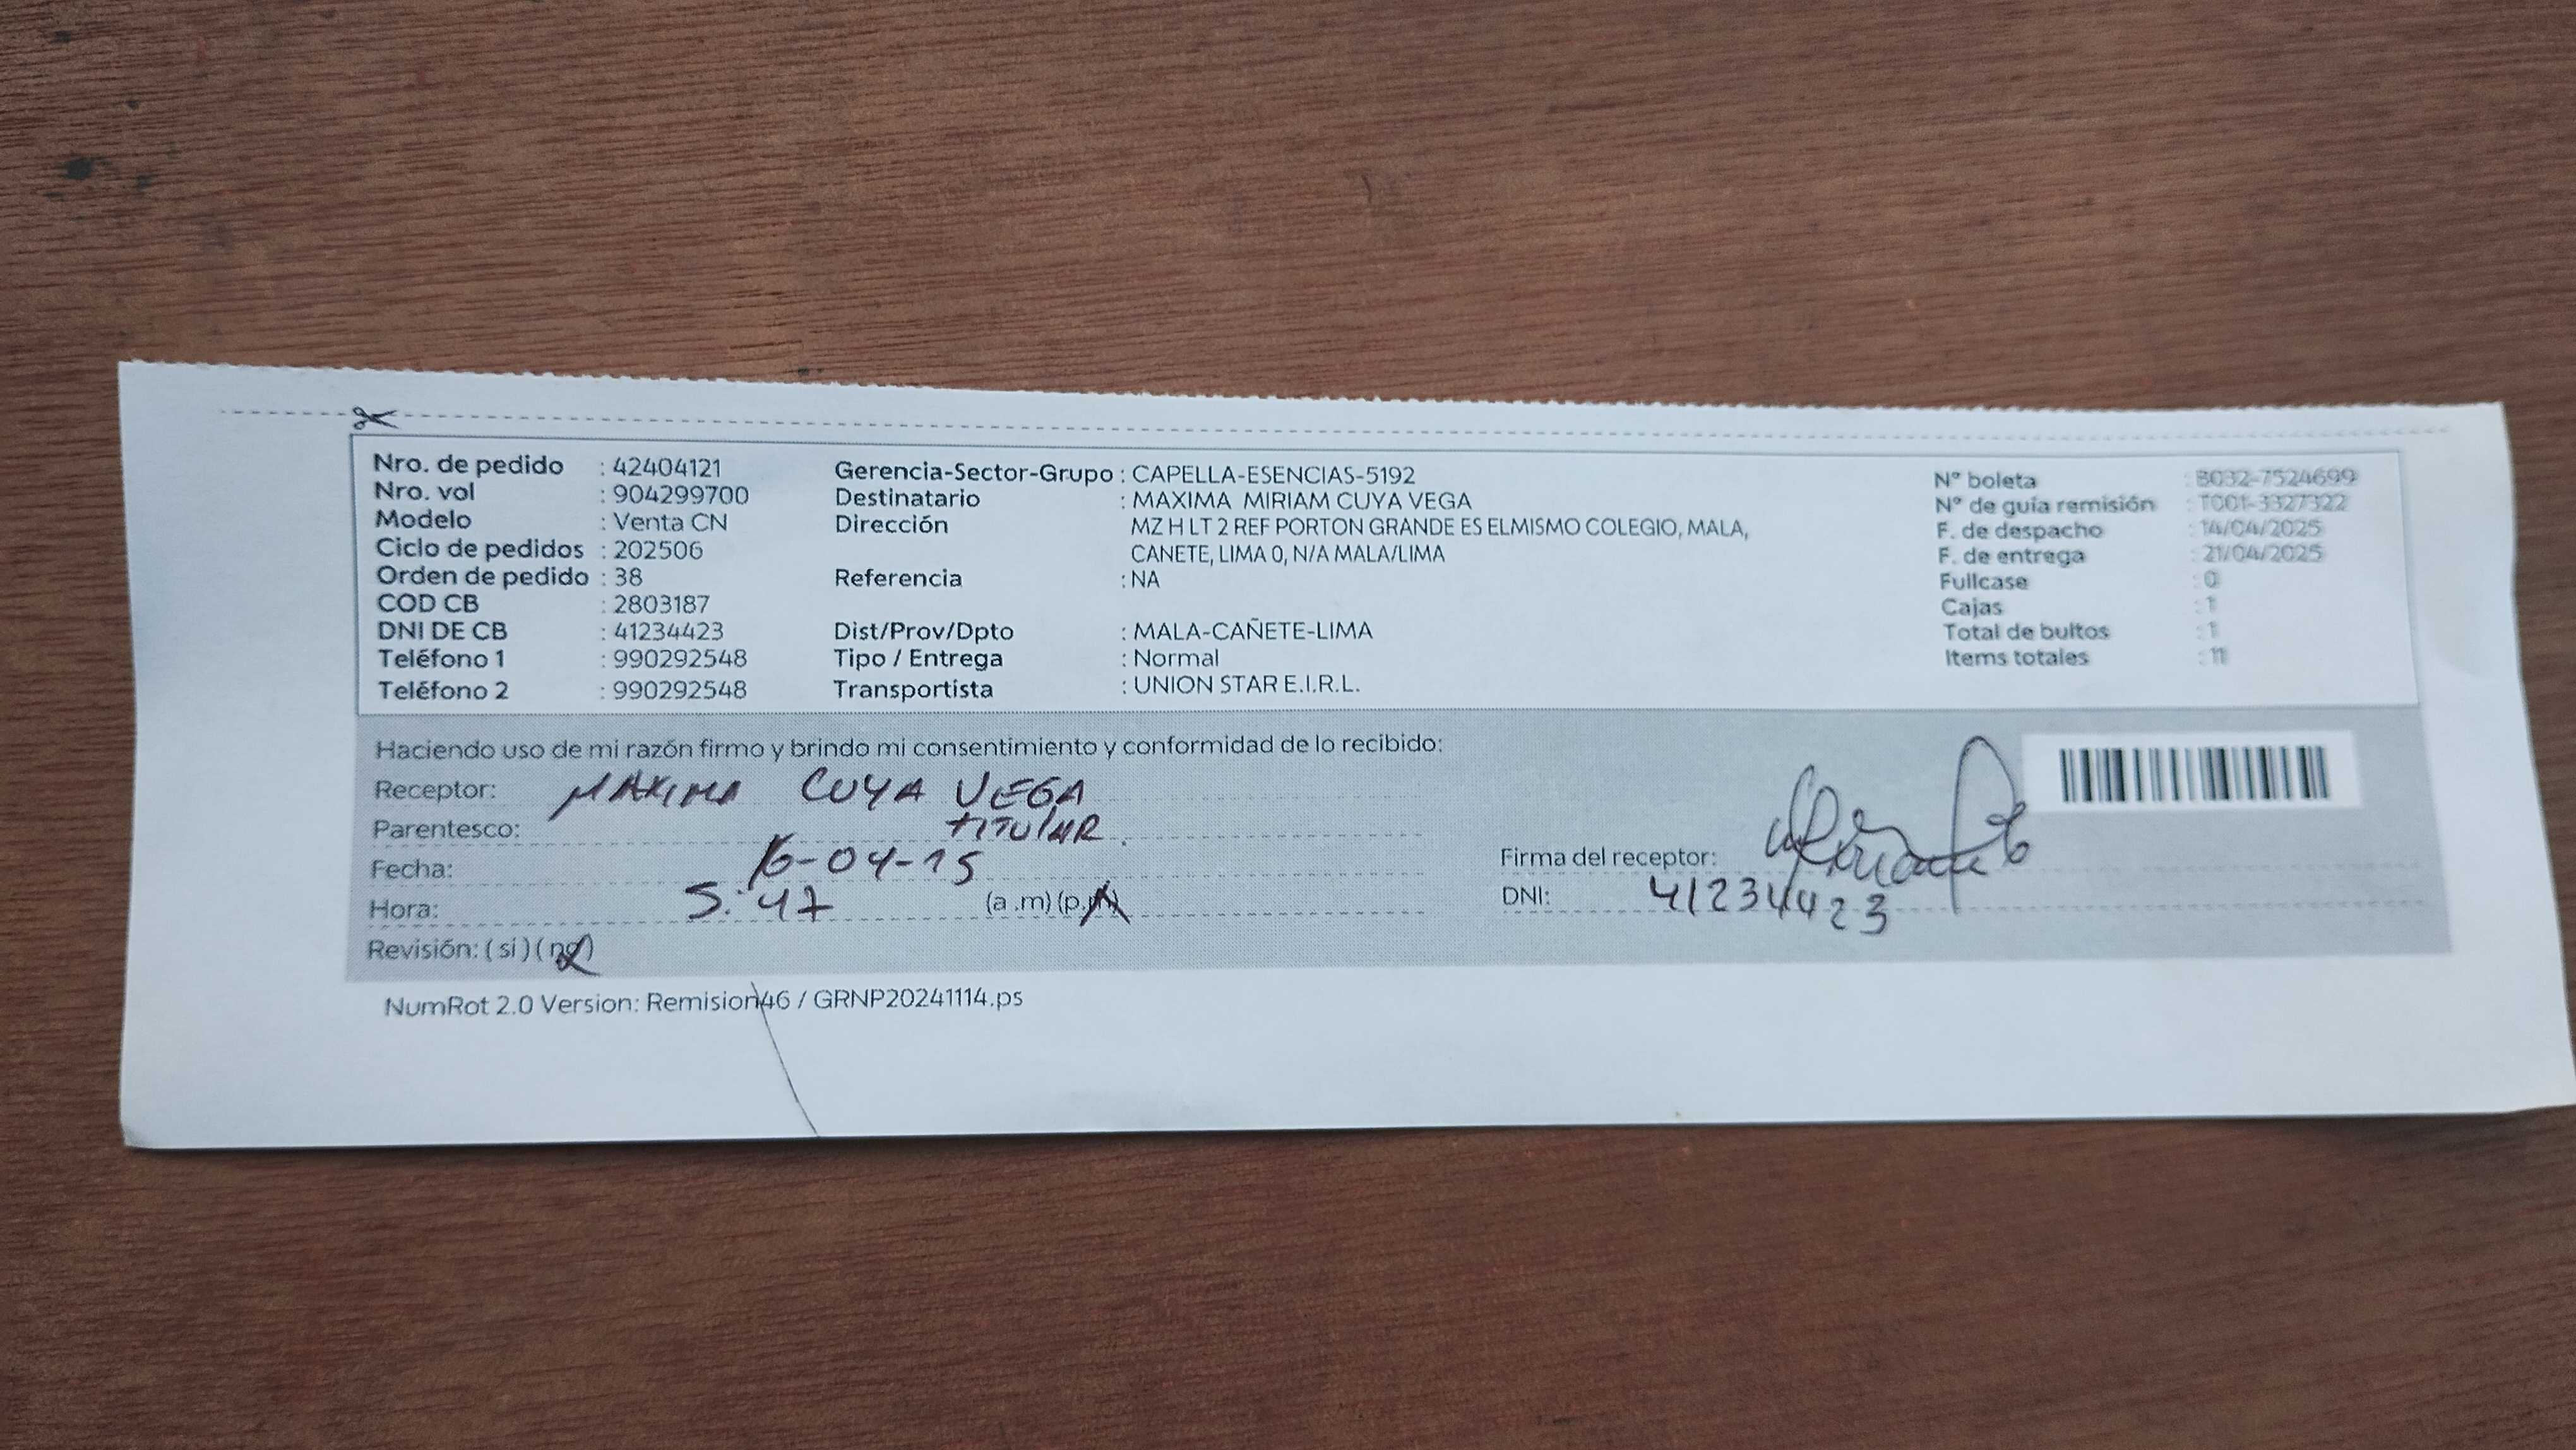 Nro. de pedido : 42404121
Nro. vol : 904299700
Modelo : Venta CN
Ciclo de pedidos : 202506
Orden de pedido : 38
COD CB : 2803187
DNI DE CB : 41234423
Teléfono 1 : 990292548
Teléfono 2 : 990292548
Gerencia-Sector-Grupo : CAPELLA-ESENCIAS-5192
Destinatario : MAXIMA MIRIAM CUYA VEGA
Dirección MZ H LT 2 REF PORTON GRANDE ES ELMISMO COLEGIO, MALA,
CANETE, LIMA 0, N/A MALA/LIMA
Referencia : NA
Dist/Prov/Dpto : MALA-CAÑETE-LIMA
Tipo / Entrega : Normal
Transportista : UNION STAR E.I.R.L.
N° boleta : B032-7524699
N° de guía remisión : T001-3327322
F. de despacho : 14/04/2025
F. de entrega : 21/04/2025
Fullcase : 0
Cajas : 1
Total de bultos : 1
Items totales : 11
Haciendo uso de mi razón firmo y brindo mi consentimiento y conformidad de lo recibido:
Receptor: MAXIMA CUYA VEGA
Parentesco: TITULAR.
Fecha: 16-04-15
Hora: 5:47 (a.m) (p.m)
Revisión: (si) (no)
Firma del receptor:
DNI: 41234423
NumRot 2.0 Version: Remision46 / GRNP20241114.ps